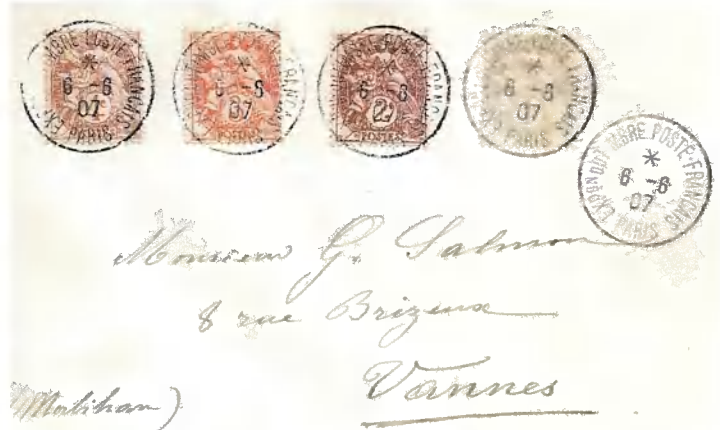 EXPON DU TIMBRE POSTE-FRANÇAIS
*
6 -6
07
PARIS
TIMBRE POSTE-FRANÇAIS
*
6 -6
07
PARIS
TIMBRE-POSTE-FRANÇAIS
*
6 -6
07
PARIS
2c
POSTES
TIMBRE-POSTE-FRANÇAIS
*
6 -6
07
PARIS
EXPON DU TIMBRE POSTE-FRANÇAIS
*
6 -6
07
PARIS
Monsieur G. Salmon
8 rue Brizeux
Vannes
(Morbihan)